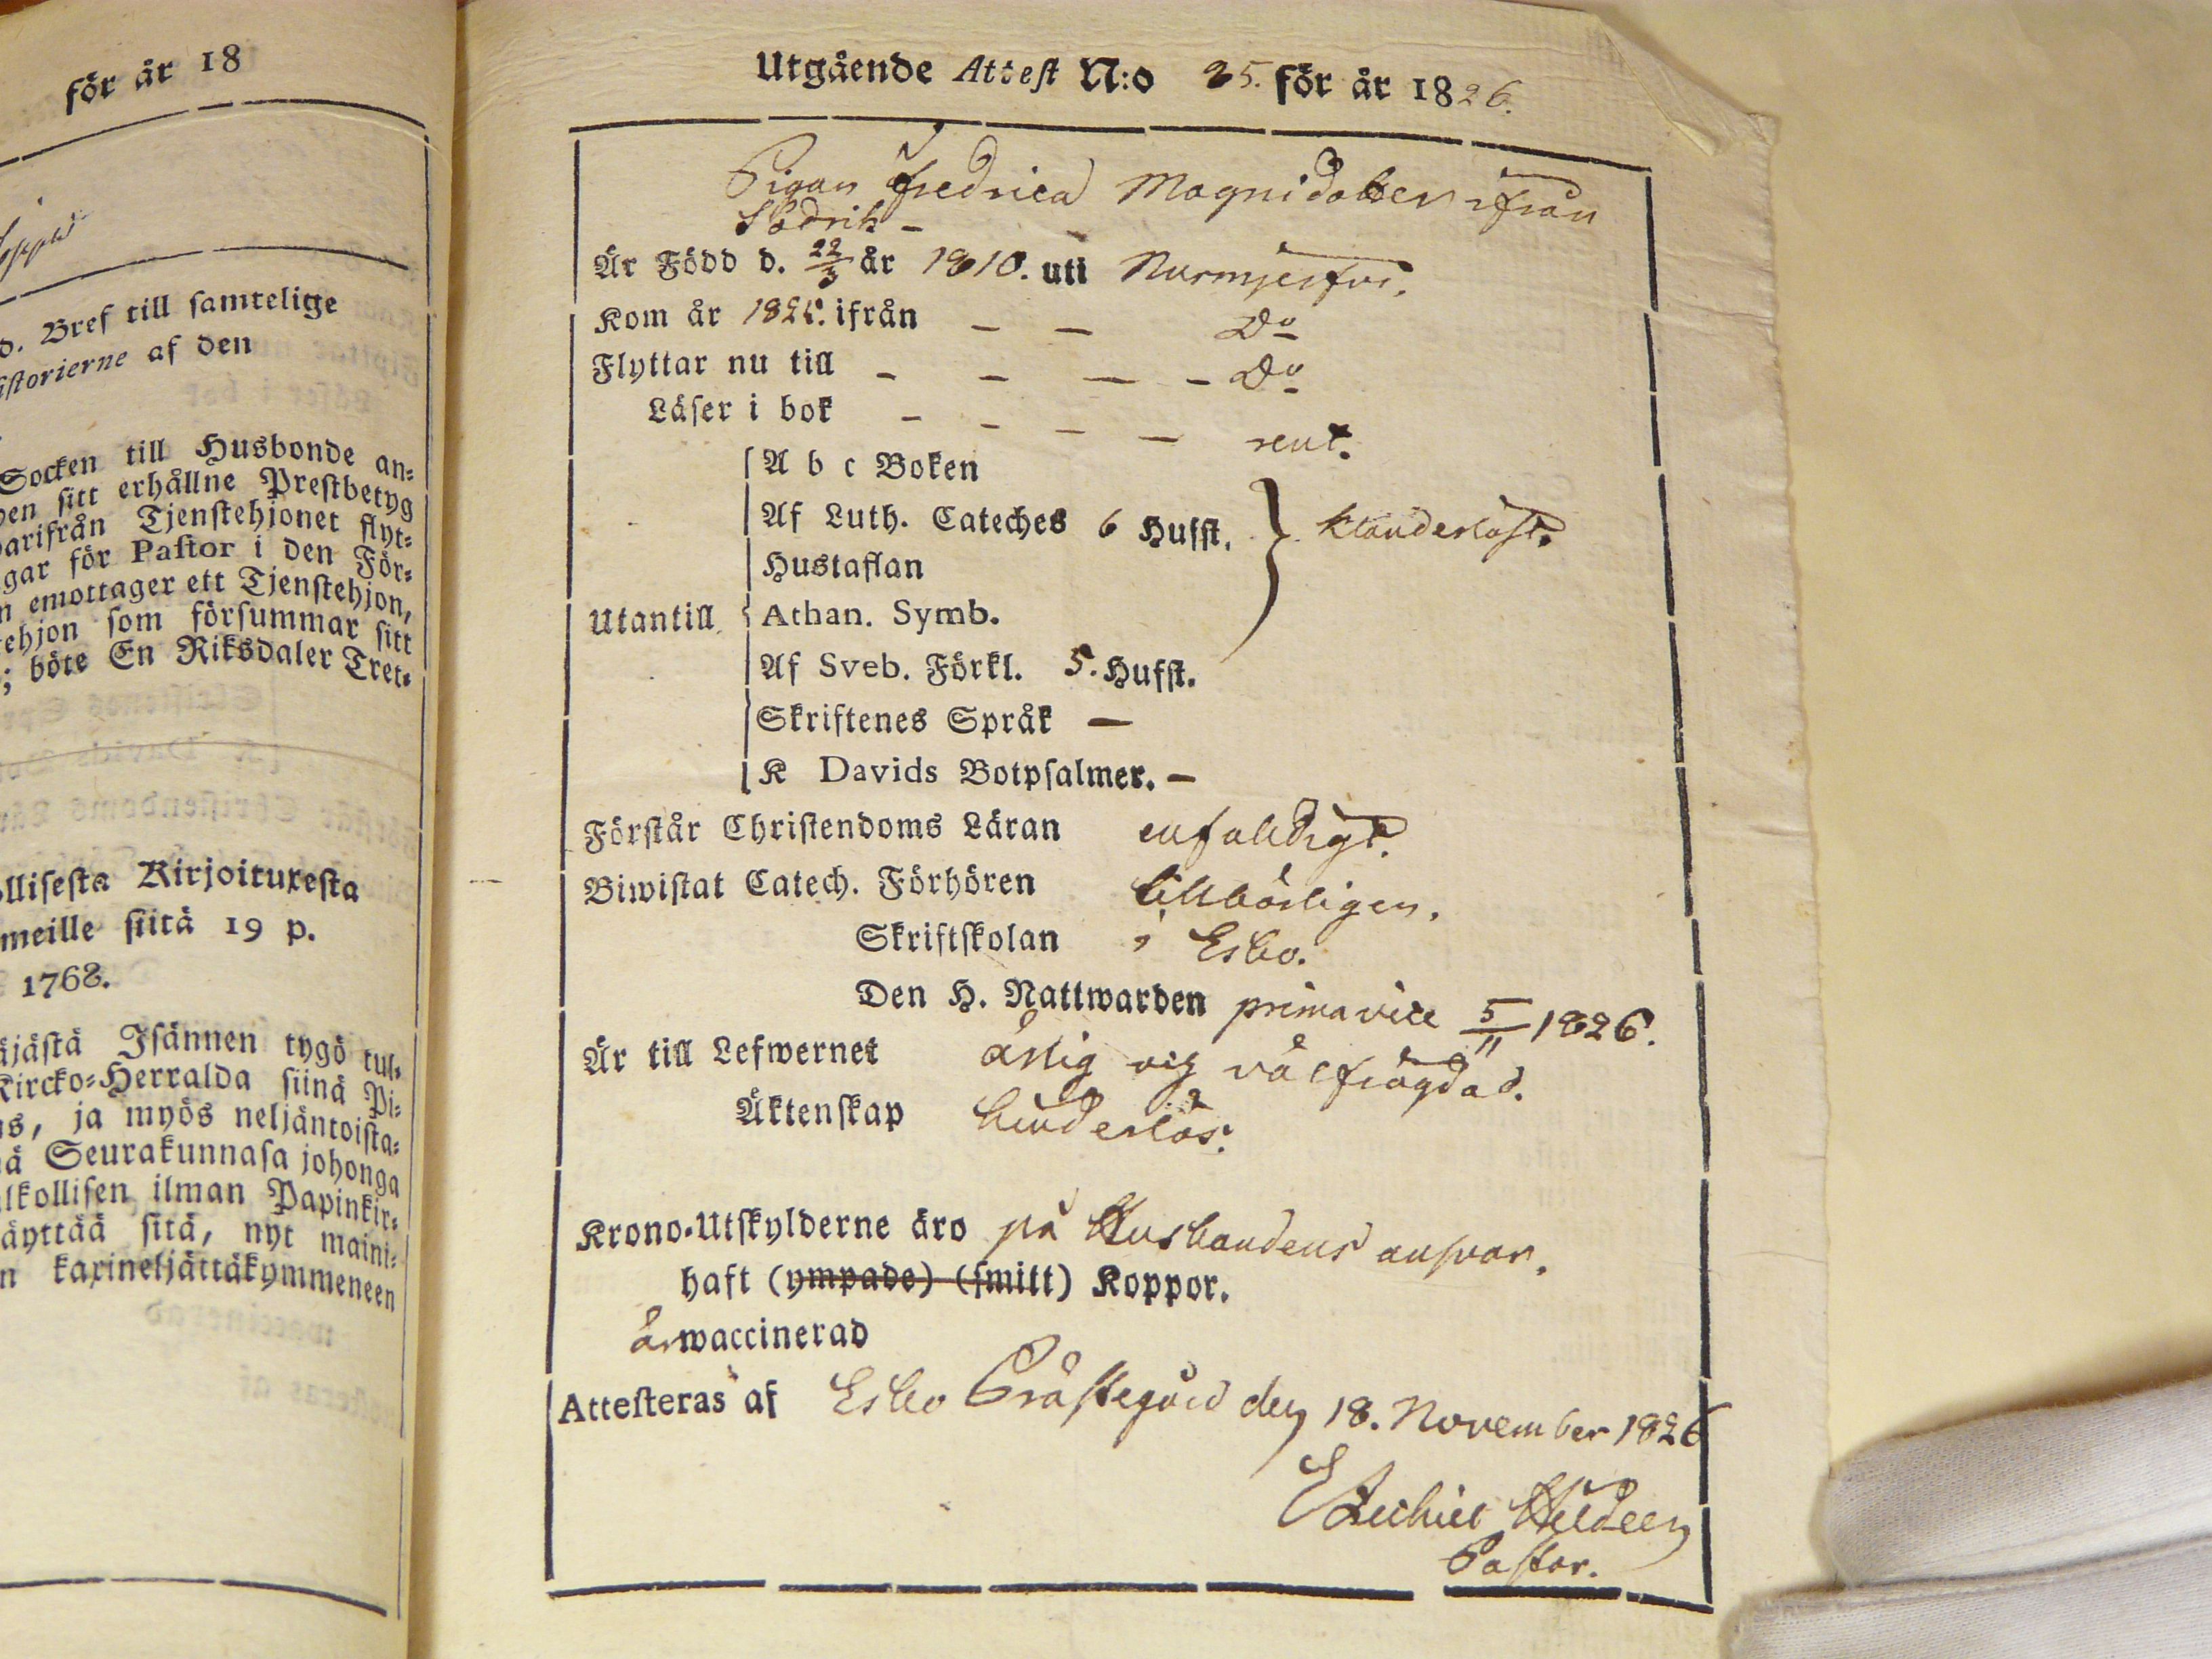 för år 18
d. Bref till samtelige
istorierne af den
Socken till Husbonde an-
pen sitt erhållne Prestbetyg
parifrån Tjenstehjonet flyt-
gar för Pastor i den För-
n emottager ett Tjenstehjon,
tehjon som försummar sitt
; böte En Riksdaler Tret-
ollisesta Kirjoituxesta
meille siitä 19 p.
1768.
äjästä Isännen tygö tul-
Kircko-Herralda siinä Pi-
us, ja myös neljäntoista-
nä Seurakunnasa johonga
alkollisen ilman Papinkir-
äyttää sitä, nyt maini-
n kaxineljättäkymmeneen
Utgående Attest N:o 25. för år 1826.
Pigan Fredrica Magnidotter ifrån
Södrik -
Är Född d. 22/3 år 1810. uti Nurmjerfvi.
Kom år 182 . ifrån — — Do
Flyttar nu till — — — — Do
Läser i bok — — — — rent.
A b c Boken
Af Luth. Cateches 6 Hufst. } klanderlöst.
Hustaflan
Utantill { Athan. Symb.
Af Sveb. Förkl. 5. Hufst.
Skriftenes Språk —
K Davids Botpsalmer. —
Förstår Christendoms Läran enfaldigt.
Biwistat Catech. Förhören tillbörligen.
Skriftskolan i Esbo.
Den H. Nattwarden prima vice 5/11 1826.
Är till Lefwernet ärlig och välfrägdad.
Äktenskap hinderlös.
Krono-Utskylderne äro på Husbondens ansvar.
haft (ympade) (smitt) Koppor.
är waccinerad
Attesteras af Esbo Prästegård den 18. November 1826
Ezechiel Hildeen
Pastor.